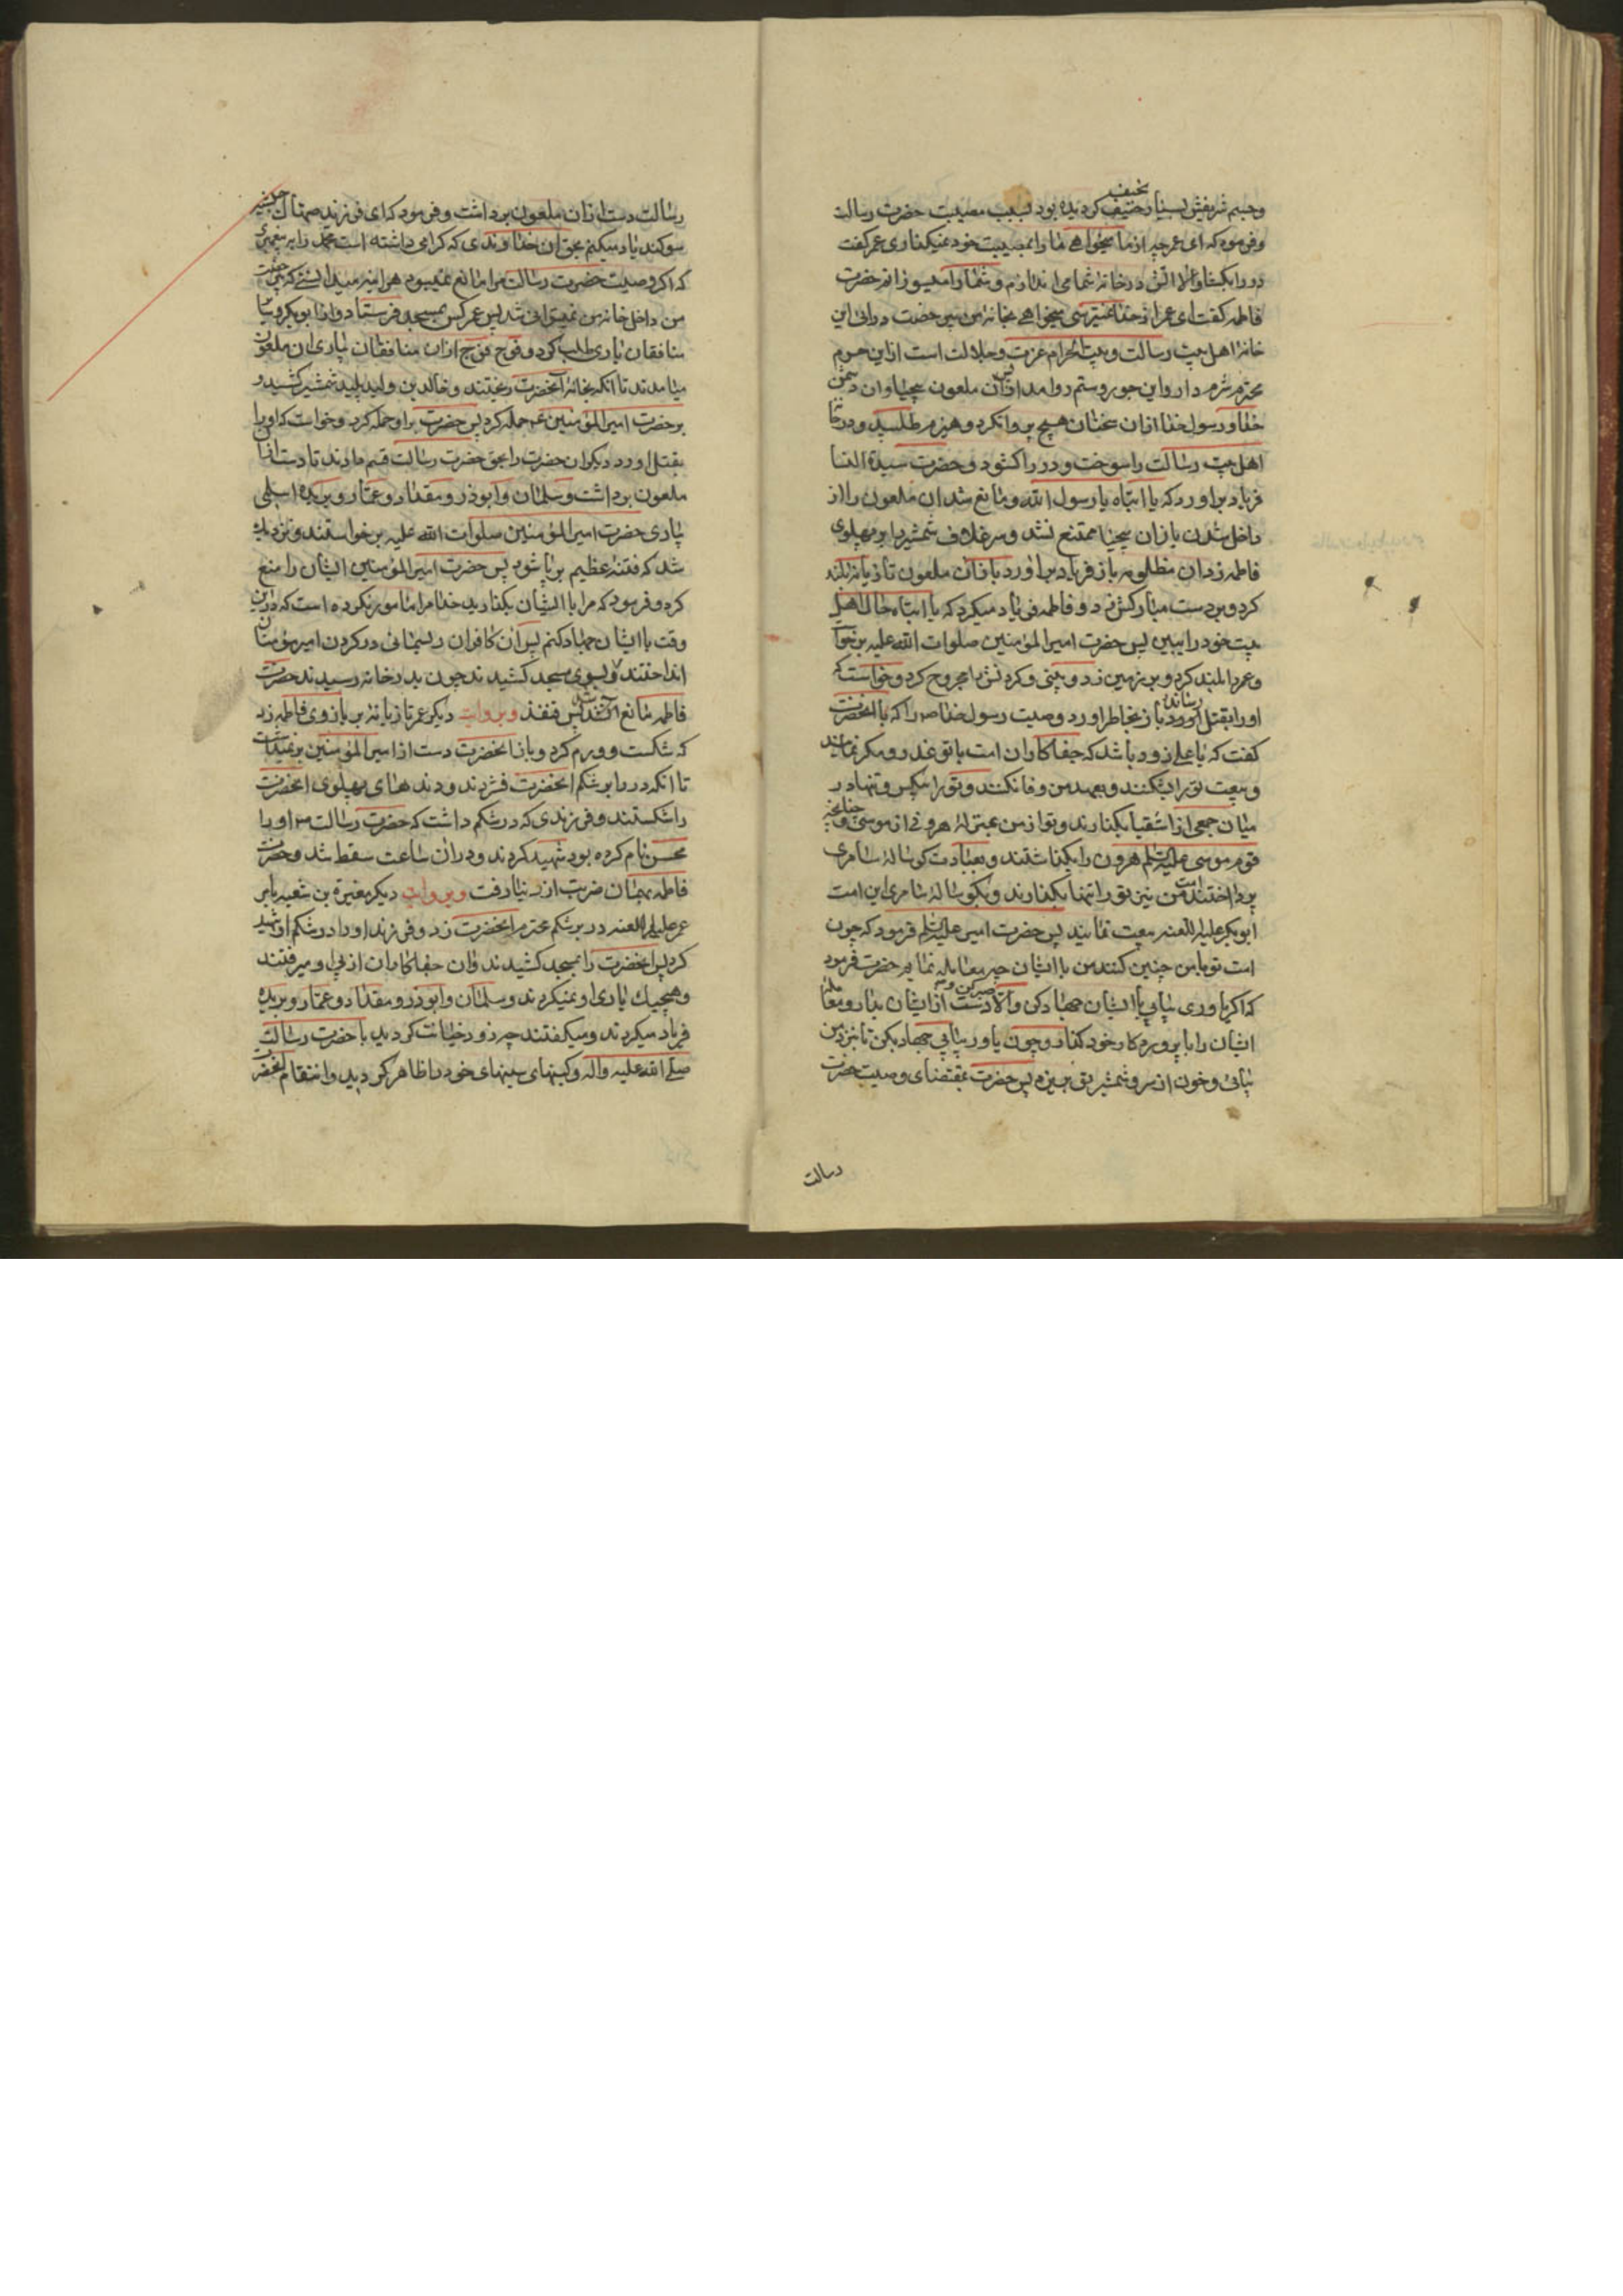 وجسم شریفش بسیار نحیف گردیده بود بسبب مصیبت حضرت رسالت
وفرمود که ای عمر چه از ما میخواهی ما را بمصیبت خود نمیگذاری عمر گفت
در را بگشا و الا آتش در خانه شما می اندازم و شما را میسوزانم حضرت
فاطمه گفت ای عمر از خدا نمیترسی میخواهی بخانه من بی رخصت درائی این
خانه اهل بیت رسالت و بیت الحرام عزت و جلالت است از این حرم
محترم شرم دار و این جور و ستم روا مدار پس آن ملعون بیحیا و آن دشمن
خدا و رسول خدا از آن سخنان هیچ پروا نکرد و هیزم طلبید و در خانه
اهل بیت رسالت را سوخت و در را گشود و حضرت سیدة النسا
فریاد براورد که یا ابتاه یا رسول الله و مانع شد آن ملعون را از
داخل شدن باز آن بیحیا ممتنع نشد و سر غلاف شمشیر را بر پهلوی
فاطمه زد آن مظلومه باز فریاد براورد باز آن ملعون تازیانه بلند
کرد و بر دست مبارکش زد و فاطمه فریاد میکرد که یا ابتاه حال اهل
بیت خود را ببین پس حضرت امیر المؤمنین صلوات الله علیه برخواست
و عمر را بلند کرد و بر زمین زد و بینی و گردنش را مجروح کرد و خواست که
او را بقتل رساند باز بخاطر اورد وصیت رسول خدا ص را که با آنحضرت
گفت که یا علی زود باشد که جفاکاران امت با تو غدر و مکر نمایند
و بیعت تو را بشکنند و بعهد من وفا نکنند و تو را بیکس و تنها در
میان جمعی از اشقیا بگذارند و تو از من بمنزله هرونی از موسی و چنانچه
قوم موسی علیه السلم هرون را بگذاشتند و بعبادت گوساله سامری
پرداختند امت من نیز تو را تنها بگذارند و بگوساله سامری این امت
ابوبکر علیه اللعنه بیعت نمایند پس حضرت امیر علیه السلم فرمود که چون
امت تو با من چنین کنند من با ایشان چه معامله نمایم حضرت فرمود
که اگر یاوری بیابی با ایشان جهاد کن و الا صبر کن و دست از ایشان بدار و معامله
ایشان را با پروردگار خود گذار و چون یاور بیابی جهاد بکن تا بنزد من
بیائی و خون از سر و شمشیر تو بریزد پس حضرت بمقتضای وصیت حضرت
رسالت
رسالت دست از آن ملعون برداشت و فرمود که ای فرزند صهاک حبشیه
سوگند یاد میکنم بحق آن خداوندی که گرامی داشته است محمد را به پیغمبری
که اگر وصیت حضرت رسالت مرا مانع نمیبود هر اینه میدانستی که بی رخصت
من داخل خانه من نمیتوانی شد پس عمر کس بمسجد فرستاد و از ابوبکر و سایر
منافقان یاری طلب کرد و فوج فوج از آن منافقان بیاری آن ملعون
میامدند تا آنکه بخانه آنحضرت ریختند و خالد بن ولید پلید شمشیر کشید و
بر حضرت امیر المؤمنین ع حمله کرد پس حضرت بر او حمله کرد و خواست که او را
بقتل اورد دیگران حضرت را بحق حضرت رسالت قسم دادند تا دست از آن
ملعون برداشت و سلمان و ابوذر و مقداد و عمار و بریده اسلمی
بیاری حضرت امیر المؤمنین صلوات الله علیه برخواستند و نزدیک
شد که فتنه عظیم برپا شود پس حضرت امیر المؤمنین ایشان را منع
کرد و فرمود که مرا با ایشان بگذارید خدا مرا مامور نکرده است که در این
وقت با ایشان جهاد کنم پس آن کافران ریسمانی در گردن امیر مؤمنان
انداختند و بسوی مسجد کشیدند چون بدر خانه رسیدند حضرت
فاطمه مانع شد پس قنفذ و بروایت دیگر عمر تازیانه بر بازوی فاطمه زد
که شکست و ورم کرد و باز آنحضرت دست از امیر المؤمنین برنمیداشت
تا آنکه در را بر شکم آنحضرت فشردند و دندهای پهلوی آنحضرت
را شکستند و فرزندی که در شکم داشت که حضرت رسالت ص او را
محسن نام کرده بود شهید کردند و در آن ساعت سقط شد و حضرت
فاطمه بهمان ضربت از دنیا رفت و بروایت دیگر مغیرة بن شعبه بامر
عمر علیه اللعنه در بر شکم محترم آنحضرت زد و فرزند او را در شکم او شهید
کرد پس آنحضرت را بمسجد کشیدند و آن جفاکاران از پی او میرفتند
و هیچیک یاری او نمیکردند و سلمان و ابوذر و مقداد و عمار و بریده
فریاد میکردند و میگفتند چه زود خیانت کردید با حضرت رسالت
صلی الله علیه و آله و کینهای سینهای خود را ظاهر کردید و انتقام آنحضرت